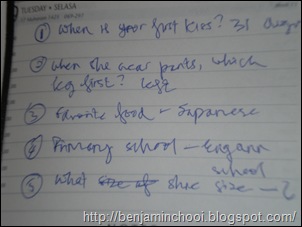 TUESDAY • SELASA
① When is your first kiss? 31
② when she wear pants, which
leg first?
③ Favorite food – Japanese
④ Primary school –
school
⑤ What size of shoe size –
http://benjaminchooi.blogspot.com/